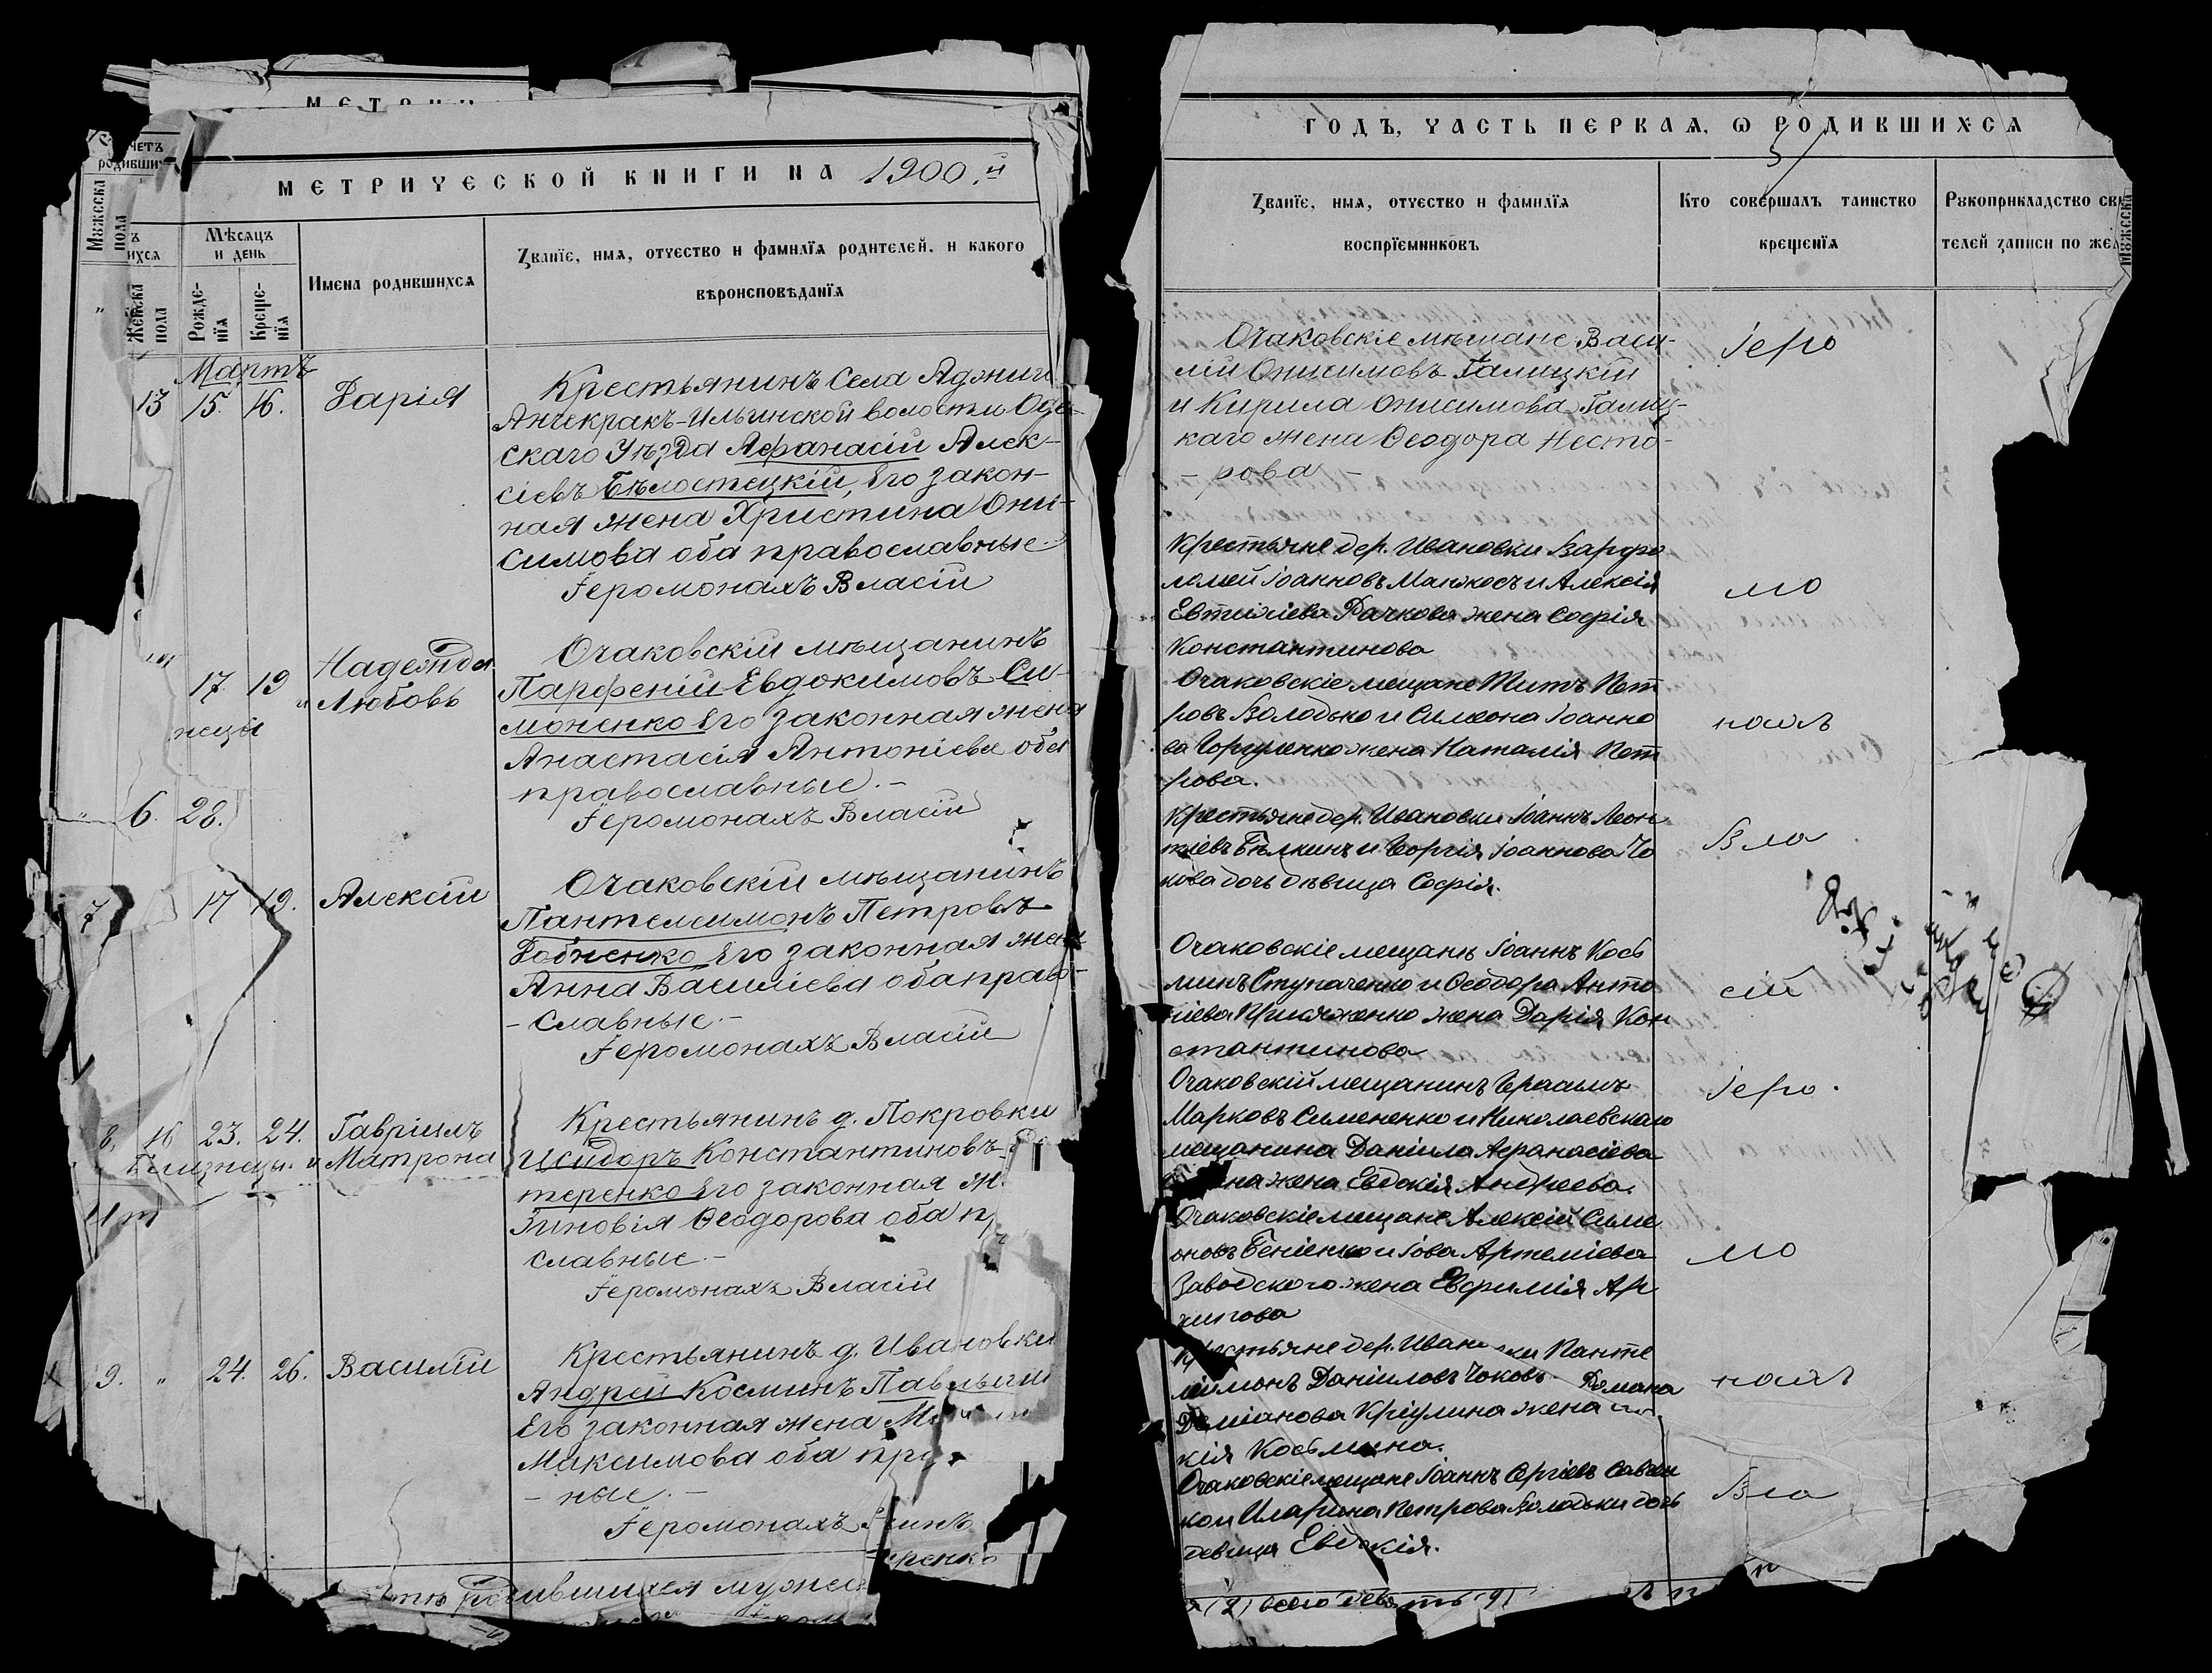 МЕТРИЧЕСКОЙ КНИГИ НА 1900.й
Мужеска пола
Женска пола
Мѣсяцъ и день
Рожде-
нїя
Креще-
нїя
Имена родившихся
Званїе, имя, отчество и фамилїя родителей, и какого
вѣроисповѣданїя
Мартъ
13 15. 16. Дарія
Крестьянинъ села Аджиги
Анчекракъ-Ильинской волости Оде-
скаго Уѣзда Афанасій Алек-
сіевъ Бѣлостецкій, Его закон-
ная жена Христина Они-
симова оба православные.
Іеромонахъ Власій
17. 19 Надежда
и Любовь
Очаковскій мѣщанинъ
Парфеній Евдокимовъ Си-
моненко Его законная жена
Анастасія Антоніева оба
православные. -
Іеромонахъ Власій
6. 28.
7 17 19. Алексій
Очаковскій мѣщанинъ
Пантелеимонъ Петровъ
Его законная жена
Анна Василіева оба право-
- славные. -
Іеромонахъ Власій
8, 16 23. 24. Гавріилъ
Близнецы. и Матрона
Крестьянинъ д. Покровки
Исидоръ Константиновъ
теренко Его законная ж
Зиновія Ѳеодорова оба п
славные. -
Іеромонахъ Власій
9. " 24. 26. Василій
Крестьянинъ д. Ивановки
Андрей Косминъ
Его законная жена
Максимова оба пра
- ные. -
Іеромонахъ
родившихся мужес
ГОДЪ, ЧАСТЬ ПЕРВАЯ, Ѡ РОДИВШИХСЯ
5
Званїе, имя, отчество и фамилїя
воспрїемниковъ
Кто совершалъ таинство
крещенїя
Рукоприкладство сви
телей записи по жел
Очаковскіе мѣщане Васи-
лій Онисимовъ Галицкій
и Кирила Онисимова Галиц-
каго жена Ѳеодора Несто-
- рова -
Іеро
Крестьяне дер. Ивановки Варфо
ломей Іоанновъ Манжосъ и Алексія
Евтихіева Рачкова жена Софія
Константинова
мо
Очаковскіе мещане Титъ Пет
ровъ Володько и Симеона Іоанно
ва Горгуленко жена Наталія Пет
рова.
нахъ
Крестьяне дер. Ивановки Іоаннъ Леон
тіевъ Бѣлкинъ и Георгія Іоаннова Чо
кова дочь дѣвица Софія.
Вла
Очаковскіе мещане Іоаннъ Кось
минъ Ступаченко и Ѳеодора Анто
ніева Присяженко жена Дарія Кон
стантинова
сій
Очаковскій мещанинъ Герасимъ
Марковъ Симененко и Николаевскаго
мещанина Даніила Афанасіева
жена Евдокія Андреева.
Іеро.
Очаковскіе мещане Алексій Симе
оновъ Беніенко и Іова Артеміева
Заводского жена Евфимія Ар
хипова
мо
Крестьяне дер. Иван ки Панте
лиимонъ Даниловъ Чоковъ Романа
Даміанова Кріулина жена
кія Косьмина.
нахъ
Очаковскіе мещане Іоаннъ Сергіевъ
Илариона Петрова Володьки дочь
девица Евдокія.
Вла
(2) всего девять (9)